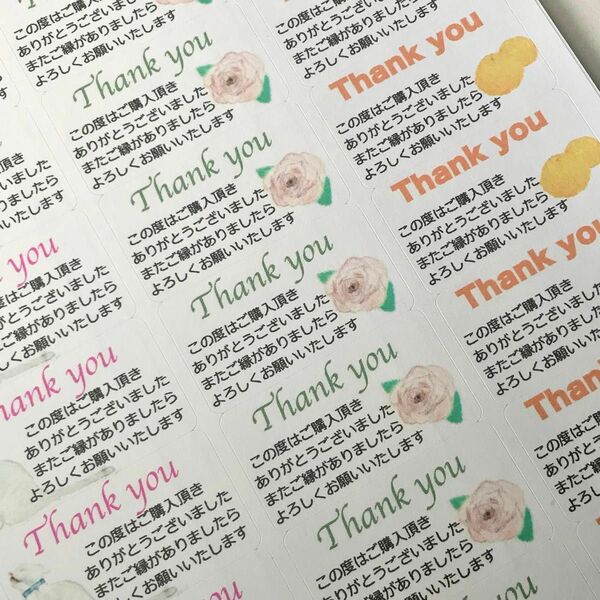 この度はご購入頂き
ありがとうございました
またご縁がありましたら
よろしくお願いいたします
Thank you
この度はご購入頂き
ありがとうございました
またご縁がありましたら
よろしくお願いいたします
Thank you
この度はご購入頂き
ありがとうございました
またご縁がありましたら
よろしくお願いいたします
Thank you
この度はご購入頂き
ありがとうございました
またご縁がありましたら
よろしくお願いいたします
Thank you
この度はご購入頂き
ありがとうございました
またご縁がありましたら
よろしくお願いいたします
Thank you
この度はご購入頂き
ありがとうございました
またご縁がありましたら
よろしくお願いいたします
Thank you
この度はご購入頂き
ありがとうございました
またご縁がありましたら
よろしくお願いいたします
Thank you
この度はご購入頂き
ありがとうございました
またご縁がありましたら
よろしくお願いいたします
Thank you
この度はご購入頂き
ありがとうございました
またご縁がありましたら
よろしくお願いいたします
Thank you
you
この度はご購入頂き
ありがとうございました
またご縁がありましたら
よろしくお願いいたします
hank you
この度はご購入頂き
ありがとうございました
またご縁がありましたら
よろしくお願いいたします
Thank you
この度はご購入頂き
ありがとうございました
またご縁がありましたら
よろしくお願いいたします
Thank you